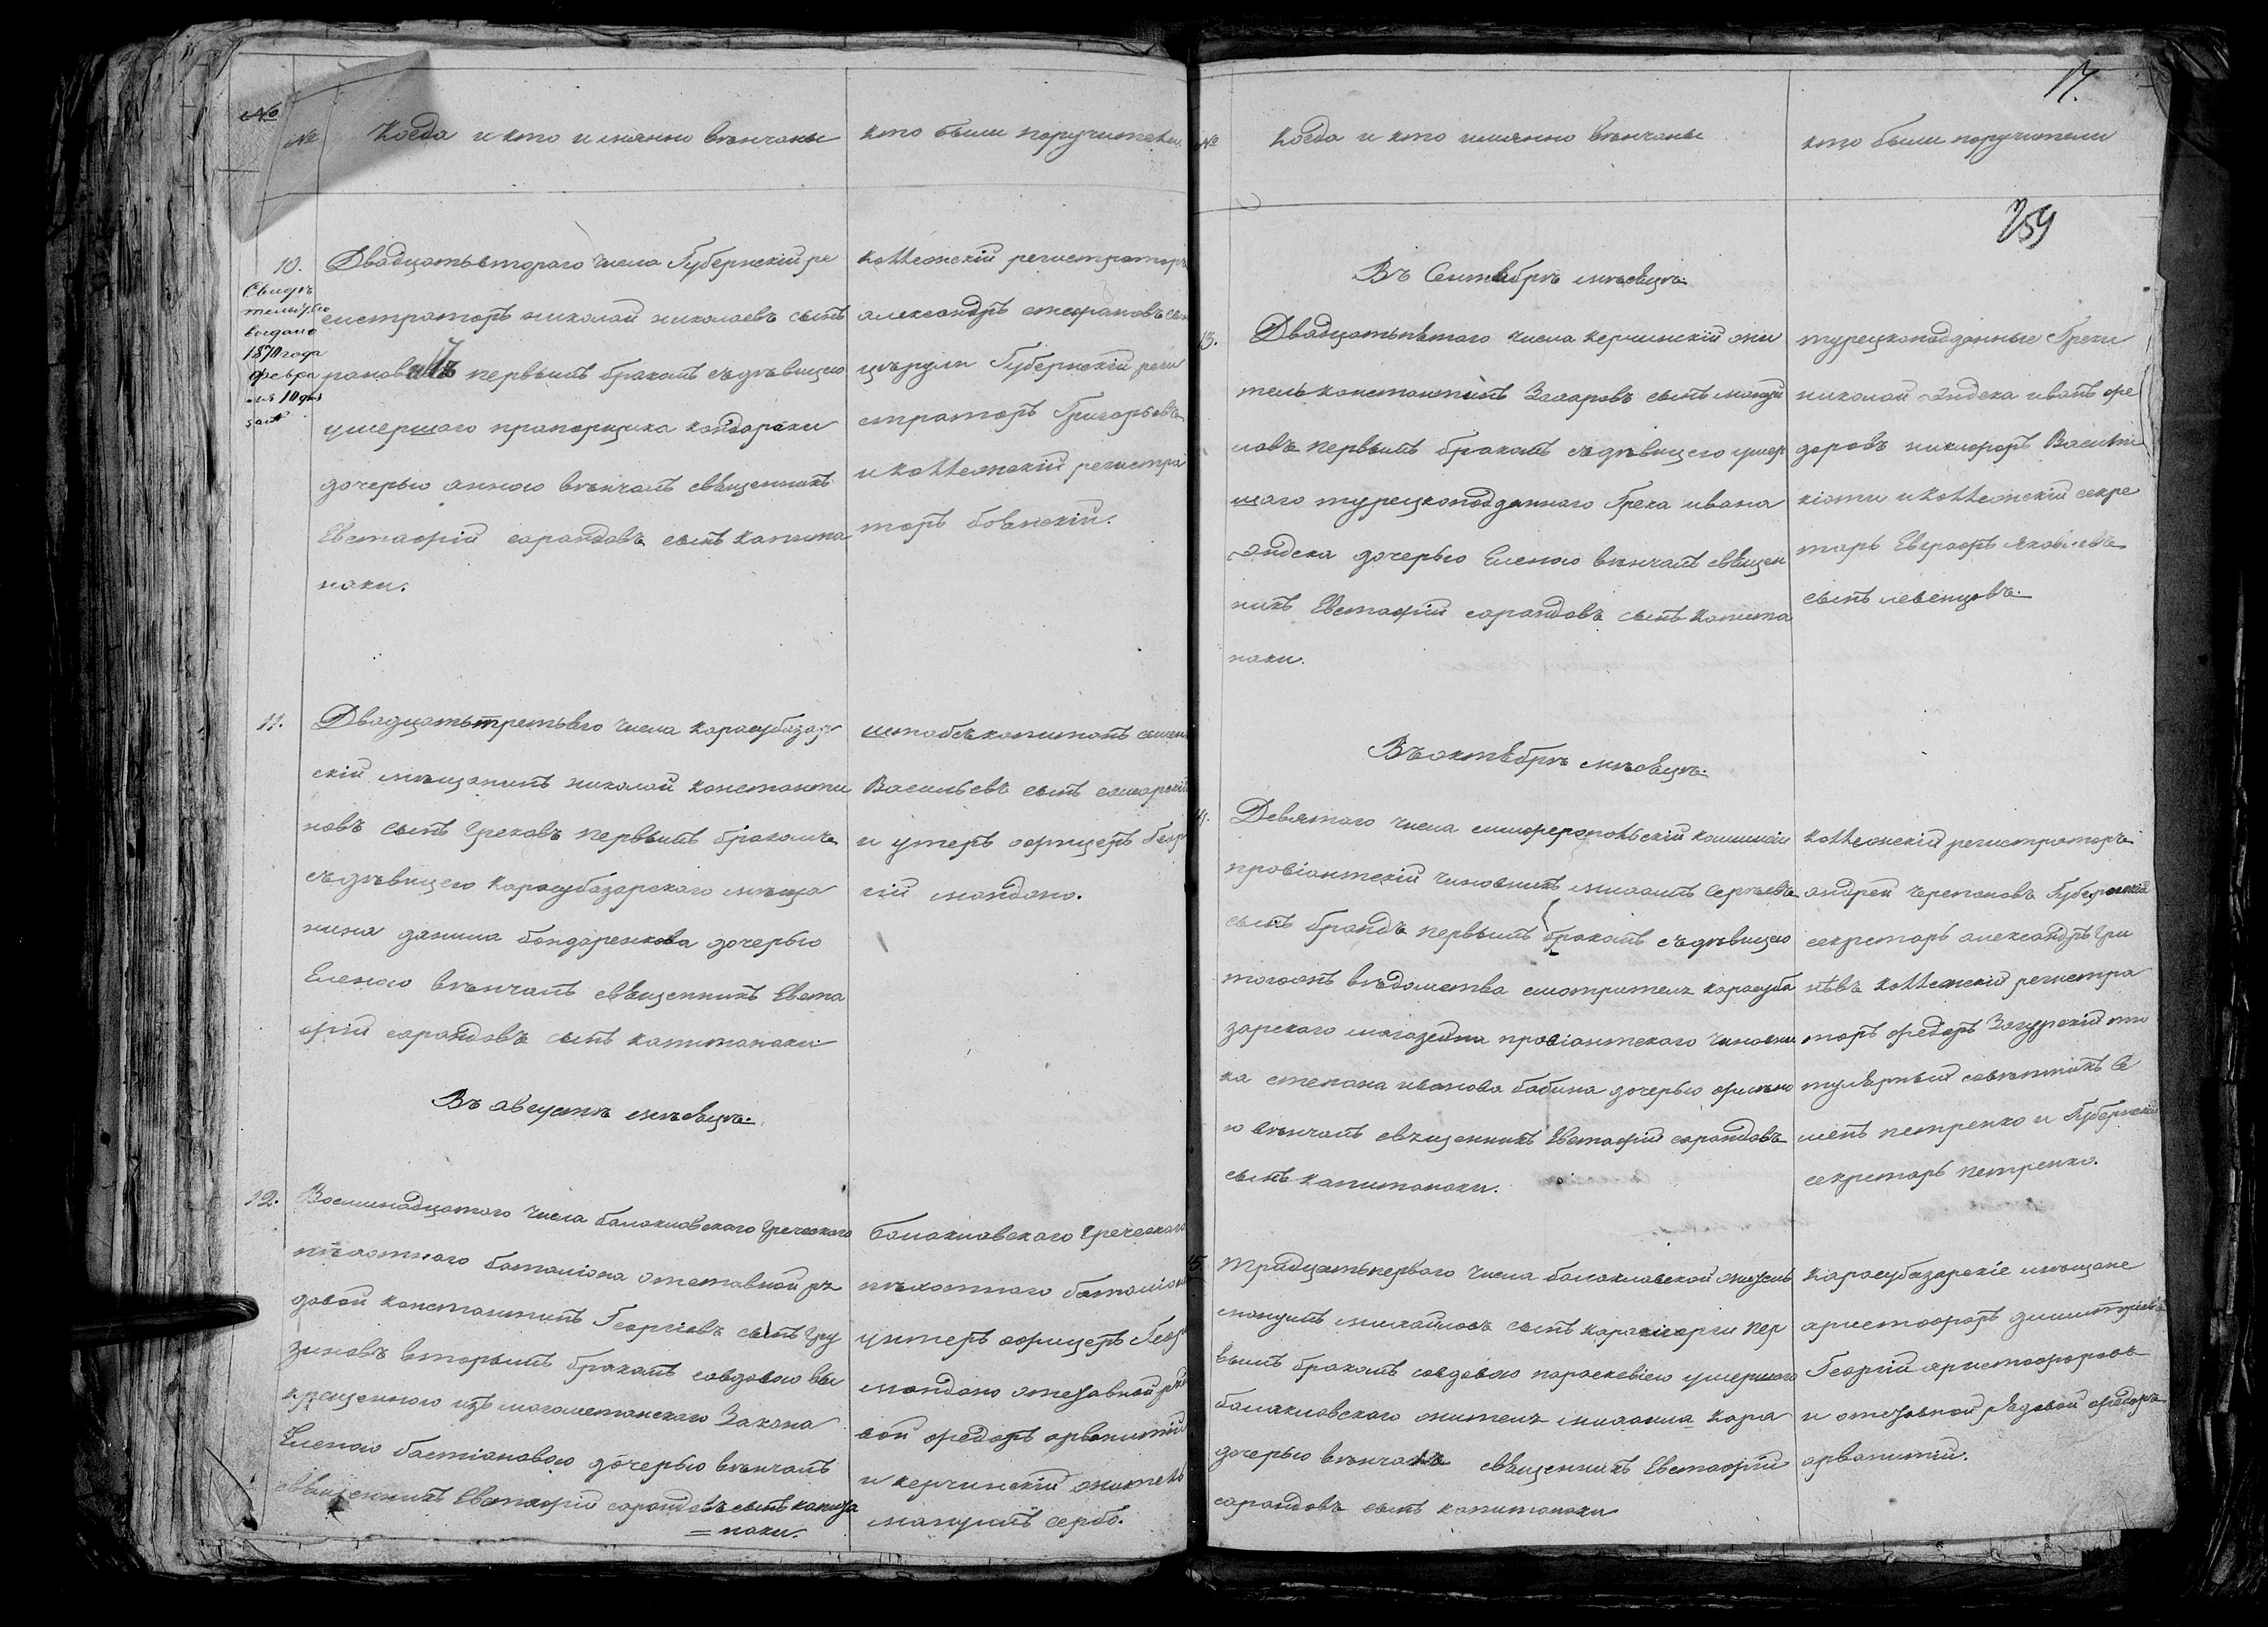 №
№
Когда и кто имянно вѣнчаны
кто были поручители
10.
Свидѣ
тельство
выдано
1870 года
Февра
ля 10 дня
Двадцатьвтораго числа Губернскій ре
гистраторъ николай николаевъ сынъ
первымъ бракомъ съ дѣвицею
умершаго прапорщика кондараки
дочерью анною вѣнчалъ священникъ
Евстафій сарандовъ сынъ капита
наки.
коллежскій регистраторъ
александръ стефановъ сын
цѣрули Губернскій реги
страторъ Григорьевъ
и коллежскій регистра
торъ
11.
Двадцатьтретьяго числа карасубазар
скій мѣщанинъ николай константи
новъ сынъ Грековъ первымъ бракомъ
съ дѣвицею карасубазарскаго мѣща
нина данила бондаренкова дочерью
Еленою вѣнчалъ священникъ Евста
фій сарандовъ сынъ капитанаки
штабсъ капитанъ семен
Васильевъ сынъ
и унтеръ офицеръ Геор
гій мандано.
Въ августѣ мѣсяцѣ.
12.
Восемнадцатаго числа балаклавскаго Греческаго
пѣхотнаго баталіона отставной ря
довой константинъ Георгіевъ сынъ Гру
зиновъ вторымъ бракомъ со вдовою вы
крещенною изъ магометанскаго Закона
Еленою бастіановою дочерью вѣнчалъ
священникъ Евстафій сарандовъ сынъ капита
= наки.
балаклавскаго Греческаго
пѣхотнаго баталіон
унтеръ офицеръ Геор
мандано отставной рядо
вой федоръ арванитій
и керчинскій житель
мануилъ сербо.
17.
№
Когда и кто имянно вѣнчаны
кто были поручители
259
Въ Сентябрѣ мѣсяцѣ.
13.
Двадцатьпятаго числа керчинскій жи
тель константинъ Захаровъ сынъ мануи
ловъ первымъ бракомъ съ дѣвицею умер
шаго турецкоподданнаго Грека ивана
Андека дочерью Еленою вѣнчалъ священ
никъ Евстафій сарандовъ сынъ капита
наки.
турецкоподданные Греки
николай Андека иванъ фе
доровъ никифоръ Васили
кіоти и коллежскій секре
тарь Евграфъ яковлевъ
сынъ левенцовъ.
Въ октябрѣ мѣсяцѣ.
14.
Девятаго числа симферопольскій коммисіи
провіантскій чиновникъ михаилъ Сергѣевъ
сынъ брандъ первымъ бракомъ съ дѣвицею
тогожъ вѣдомства смотрителя карасуба
зарскаго магазейна провіантскаго чиновни
ка степана иванова бабина дочерью
ю вѣнчалъ священникъ Евстафій сарандовъ
сынъ капитанаки.
коллежскій регистраторъ
андрей черепановъ Губернскій
секретарь александръ Гри
коллежскій регистра
торъ федоръ Загурскій ти
тулярный совѣтникъ Се
менъ петренко и Губернскій
секретарь петренко.
15.
тридцатьперваго числа балаклавской житель
мануилъ михайловъ сынъ карагиорги пер
вымъ бракомъ со вдовою параскевіею умершаго
балаклавскаго жителя михаила кара
дочерью вѣнчалъ священникъ Евстафій
сарандовъ сынъ капитанаки
карасубазарскіе мѣщане
аристофоръ димитріевъ
Георгій аристофоровъ
и отставной рядовой федоръ
арванитій.